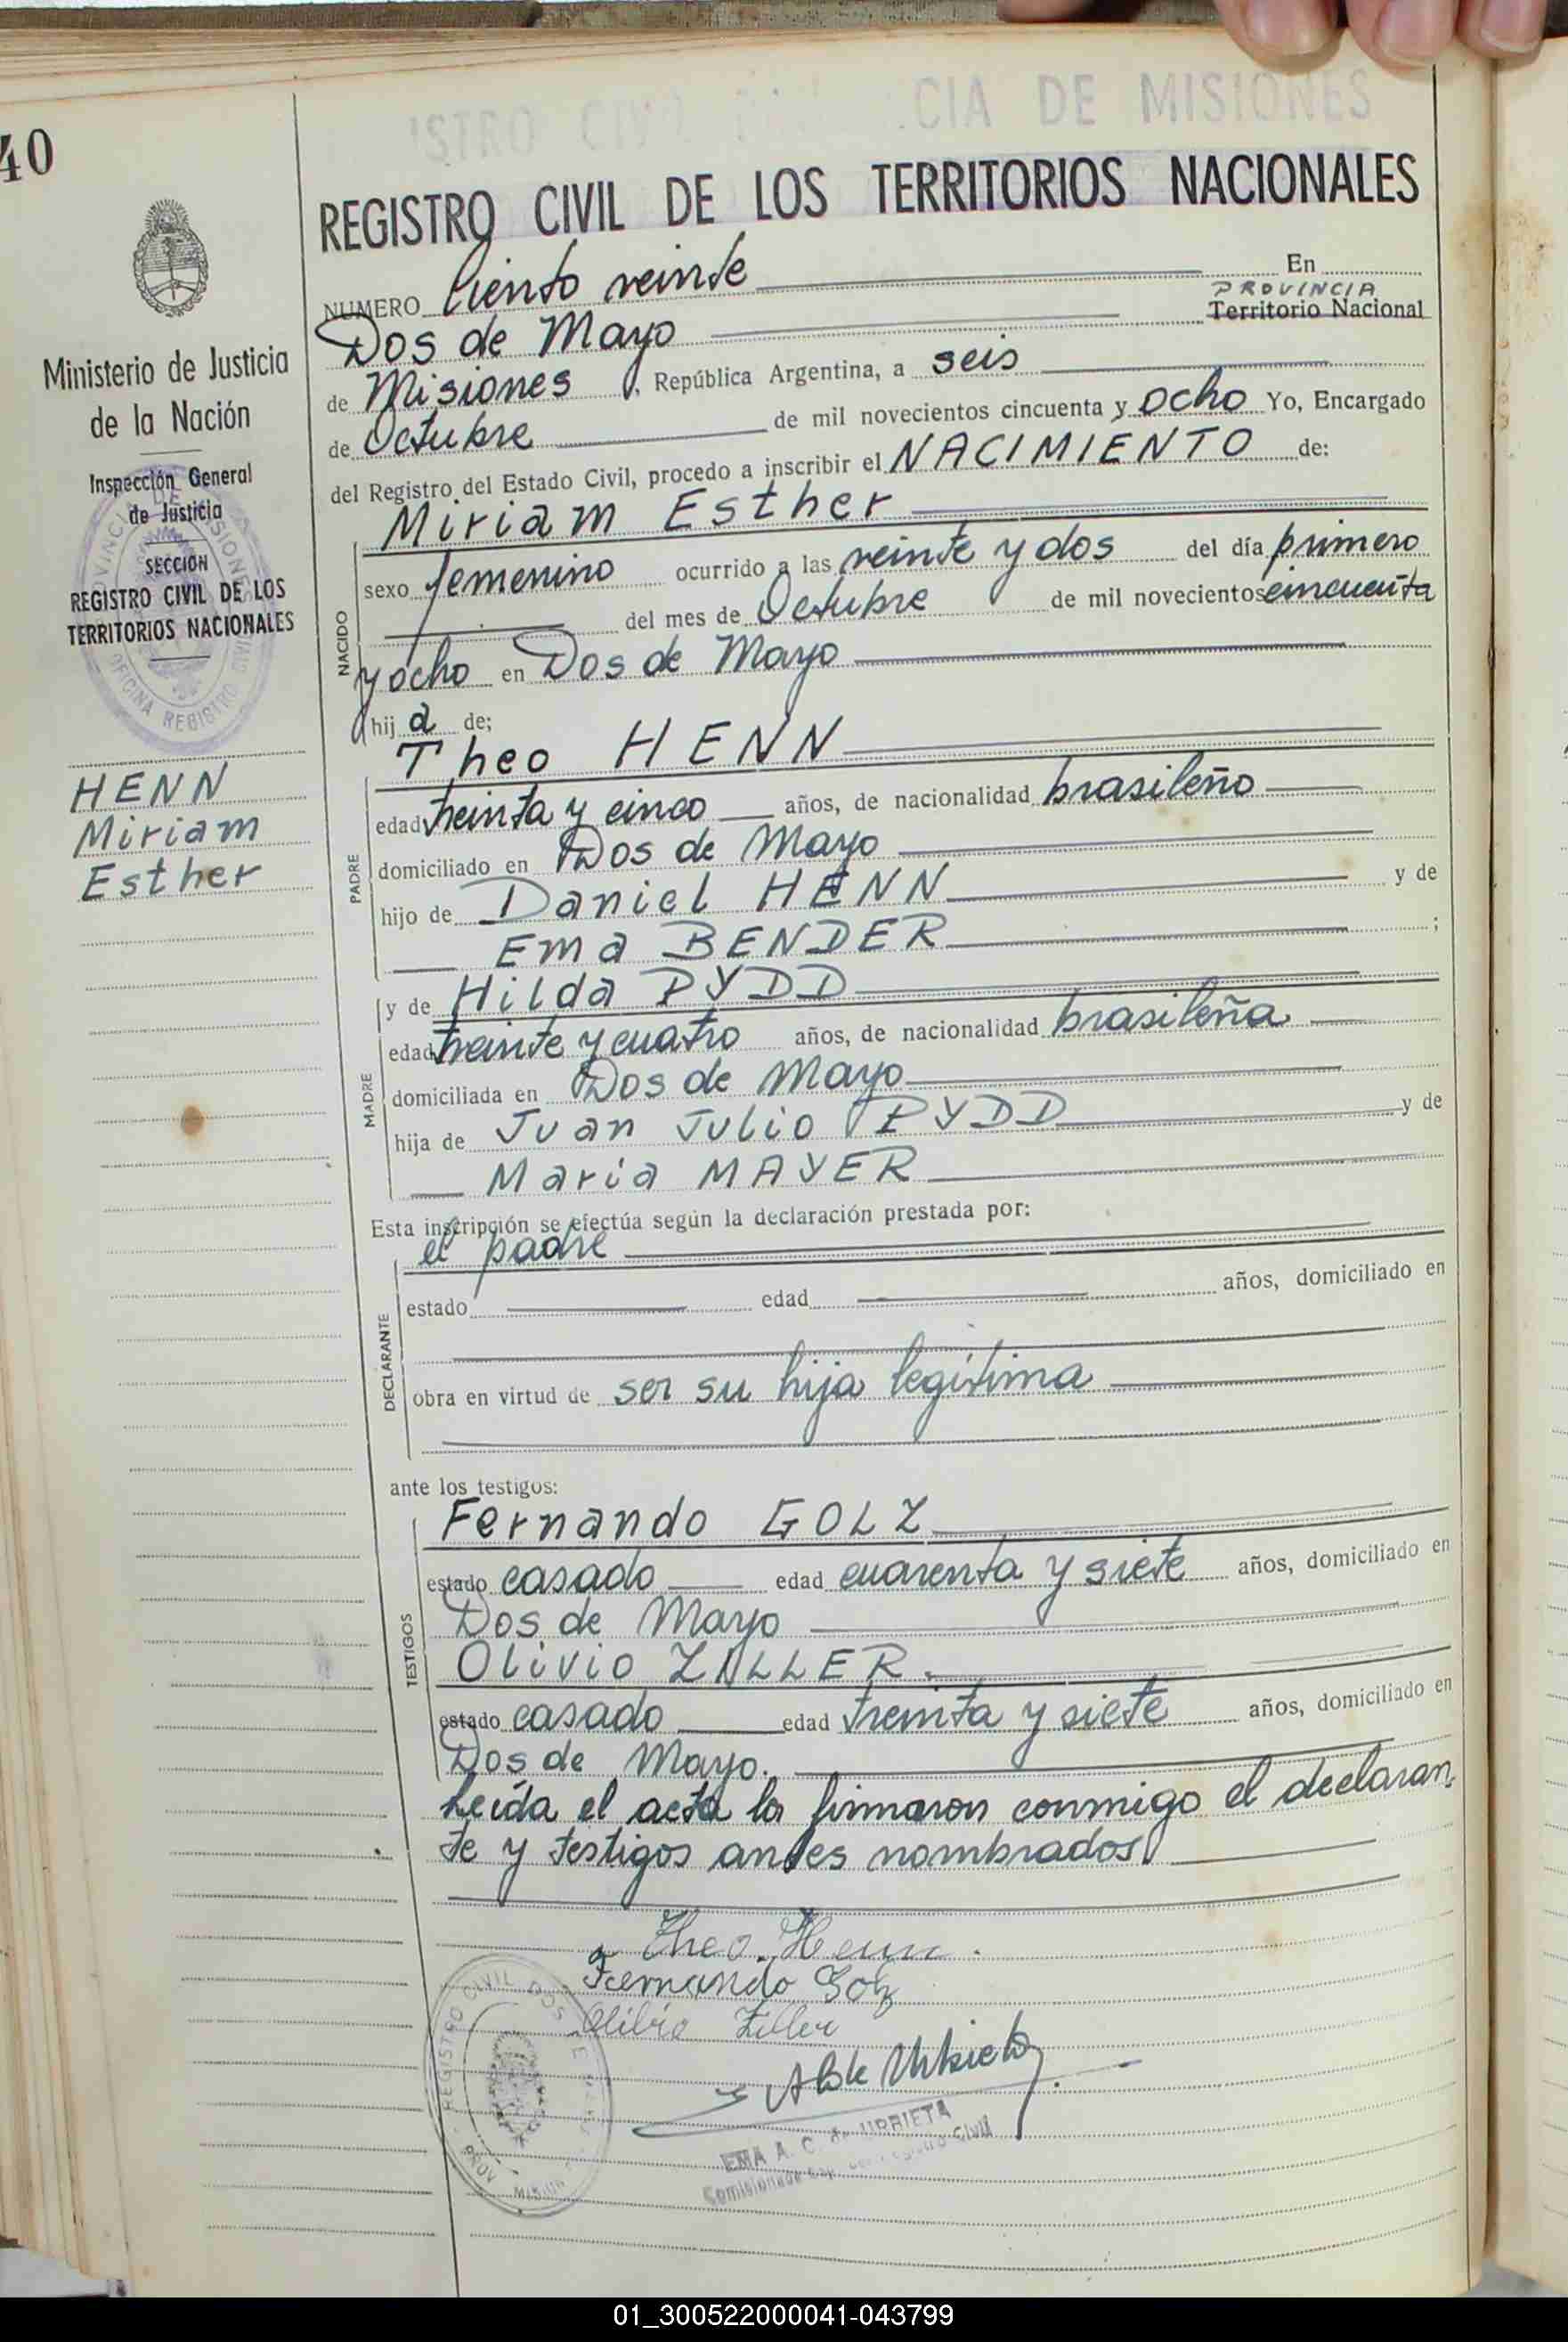 40
CIA DE MISIONES
REGISTRO CIVIL DE LOS TERRITORIOS NACIONALES
NUMERO Ciento veinte En
PROVINCIA
Dos de Mayo Territorio Nacional
de Misiones, República Argentina, a seis
de Octubre de mil novecientos cincuenta y ocho Yo, Encargado
del Registro del Estado Civil, procedo a inscribir el NACIMIENTO de:
Miriam Esther
NACIDO
sexo femenino ocurrido a las veinte y dos del día primero
del mes de Octubre de mil novecientos cincuenta
y ocho en Dos de Mayo
hij a de;
Theo HENN
PADRE
edad treinta y cinco años, de nacionalidad brasileño
domiciliado en Dos de Mayo
hijo de Daniel HENN y de
Ema BENDER ;
y de Hilda PYDD
MADRE
edad treinte y cuatro años, de nacionalidad brasileña
domiciliada en Dos de Mayo
hija de Juan Julio PYDD y de
Maria MAYER
Esta inscripción se efectúa según la declaración prestada por:
el padre
DECLARANTE
estado edad años, domiciliado en
obra en virtud de ser su hija legítima
ante los testigos:
Fernando GOLZ
TESTIGOS
estado casado edad cuarenta y siete años, domiciliado en
Dos de Mayo
Olivio ZILLER.
estado casado edad treinta y siete años, domiciliado en
Dos de Mayo.
Leída el acta la firmaron conmigo el declaran
te y testigos antes nombrados
Theo. Henn.
Fernando Golz
Olibio Ziller
EMA A. C. de URRIETA
REGISTRO CIVIL DOS DE
PROV. MISIONES
Ministerio de Justicia
de la Nación
Inspección General
de Justicia
SECCION
REGISTRO CIVIL DE LOS
TERRITORIOS NACIONALES
PROVINCIA DE MISIONES
OFICINA REGISTRO CIVIL
HENN
Miriam
Esther
01_300522000041-043799